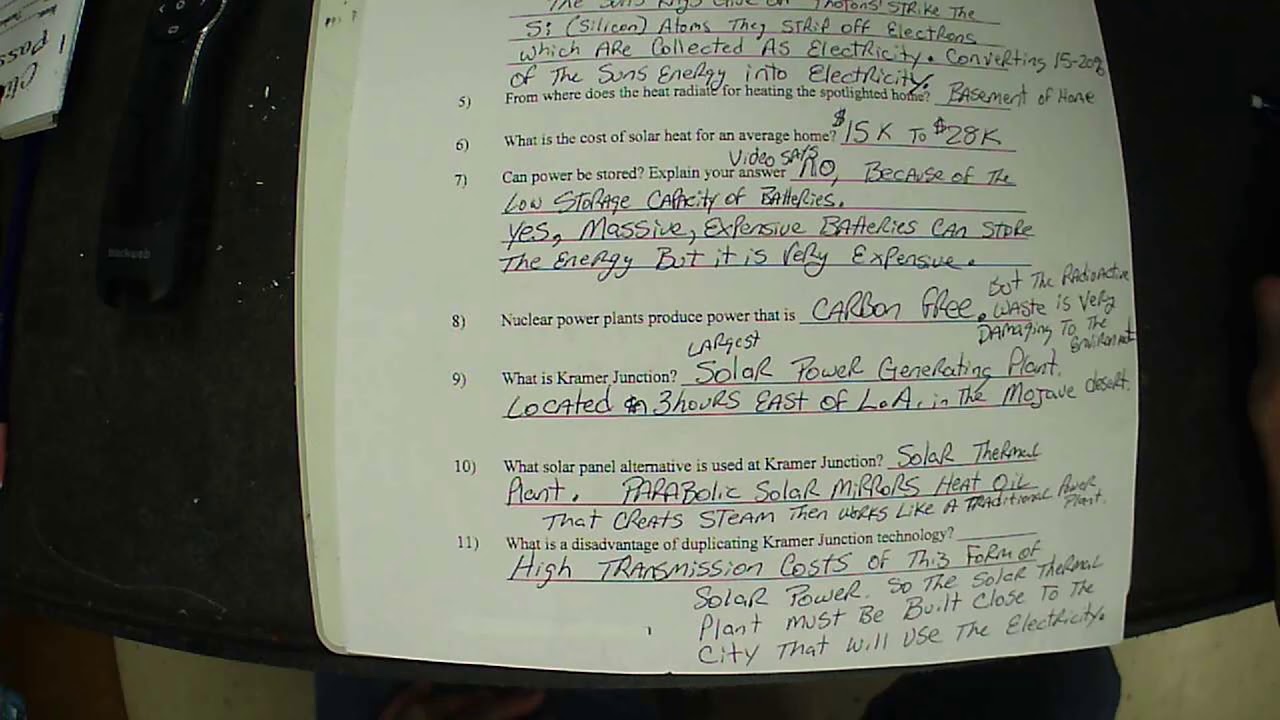 The Suns Rays Give Off Photons! STRIKE The
Si (Silicon) Atoms They STRIP off Electrons
Which ARe Collected As Electricity. Converting 15-20%
of The Suns Energy into Electricity.
5) From where does the heat radiate for heating the spotlighted home? BAsement of Home
6) What is the cost of solar heat for an average home? $15K To $28K
Video SAYS
7) Can power be stored? Explain your answer NO, BecAuse of The
Low STORAGE CAPAcity of BAtteries.
Yes, MAssive, Expensive BAtteries CAn Store
The Energy But it is Very Expensive.
8) Nuclear power plants produce power that is CARbon Free. But The RAdioActive
WAste is Very
DAmAging To The
Environment
LARgest
9) What is Kramer Junction? SolaR Power GenerAting Plant.
LocAted in 3 houRS EAST of L.A. in The MojAve desert.
10) What solar panel alternative is used at Kramer Junction? SolaR TheRmal
Plant. PARABolic SolaR MiRRoRS HeAt Oil
That CreAts STEAM Then WoRks Like A TRAditional Power
Plant.
11) What is a disadvantage of duplicating Kramer Junction technology?
High TRAnsmission Costs of This Form of
SolaR Power. So The SolaR TheRmal
Plant must Be Built Close To The
City That will Use The Electricity.
blackweb